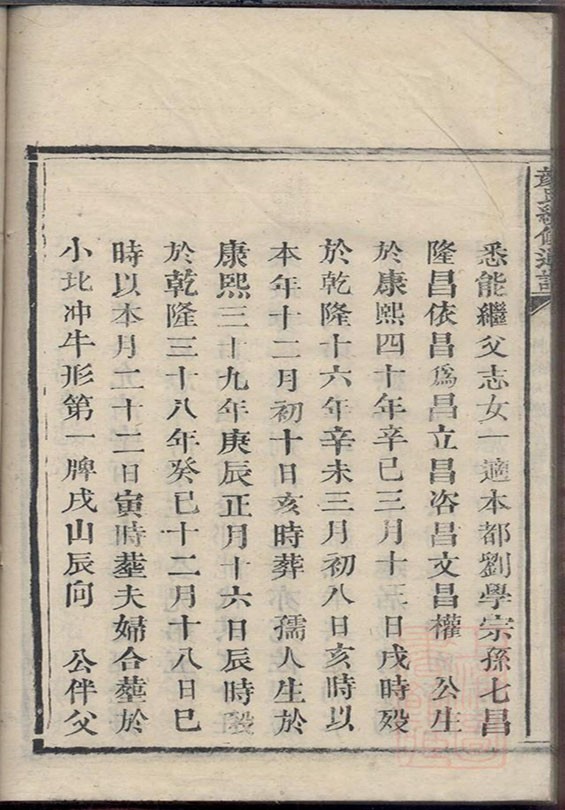 彦氏續修通譜
悉能繼父志女一適本都劉學宗孫七昌
隆昌依昌爲昌立昌咨昌文昌權　公生
於康熙四十年辛巳三月十三日戌時殁
於乾隆十六年辛未三月初八日亥時以
本年十二月初十日亥時葬　孺人生於
康熙三十九年庚辰正月十六日辰時殁
於乾隆三十八年癸巳十二月十八日巳
時以本月二十二日寅時塟夫婦合塟於
小北冲牛形第一牌戌山辰向　公伴父